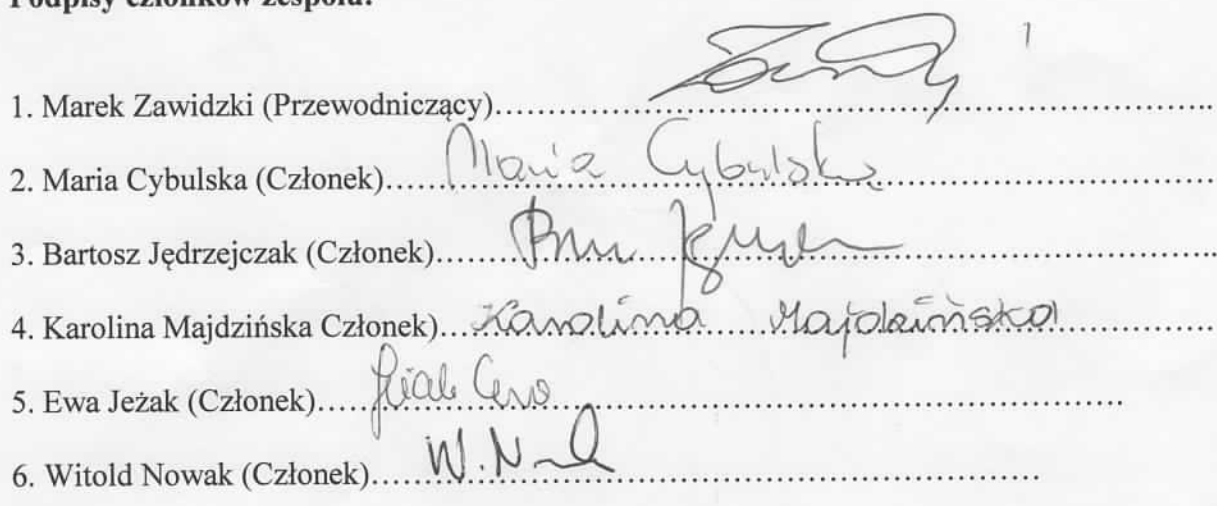 Podpisy członków zespołu:
1. Marek Zawidzki (Przewodniczący)
2. Maria Cybulska (Członek) Maria Cybulska
3. Bartosz Jędrzejczak (Członek)
4. Karolina Majdzińska Członek) Karolina Majdzińska
5. Ewa Jeżak (Członek)
6. Witold Nowak (Członek) W. N